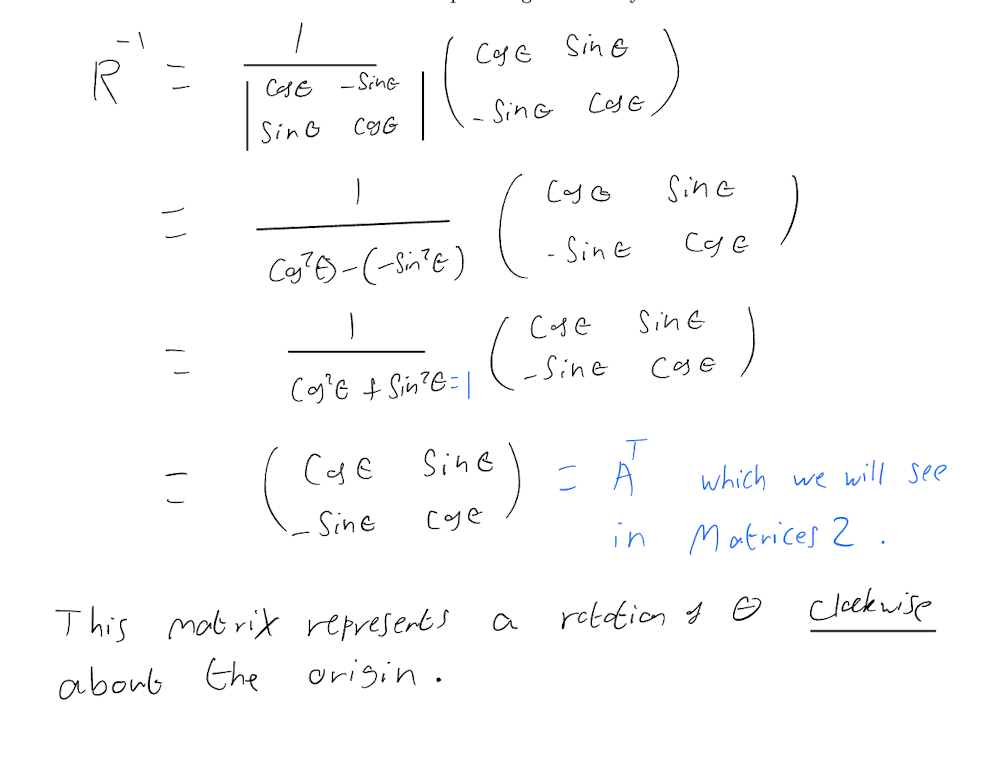 R⁻¹ = 1 / |cosθ -sinθ; sinθ cosθ| (cosθ sinθ; -sinθ cosθ)
= 1 / (cos²θ - (-sin²θ)) (cosθ sinθ; -sinθ cosθ)
= 1 / (cos²θ + sin²θ =1) (cosθ sinθ; -sinθ cosθ)
= (cosθ sinθ; -sinθ cosθ) = Aᵀ which we will see
in Matrices 2.
This matrix represents a rotation of θ clockwise
about the origin.